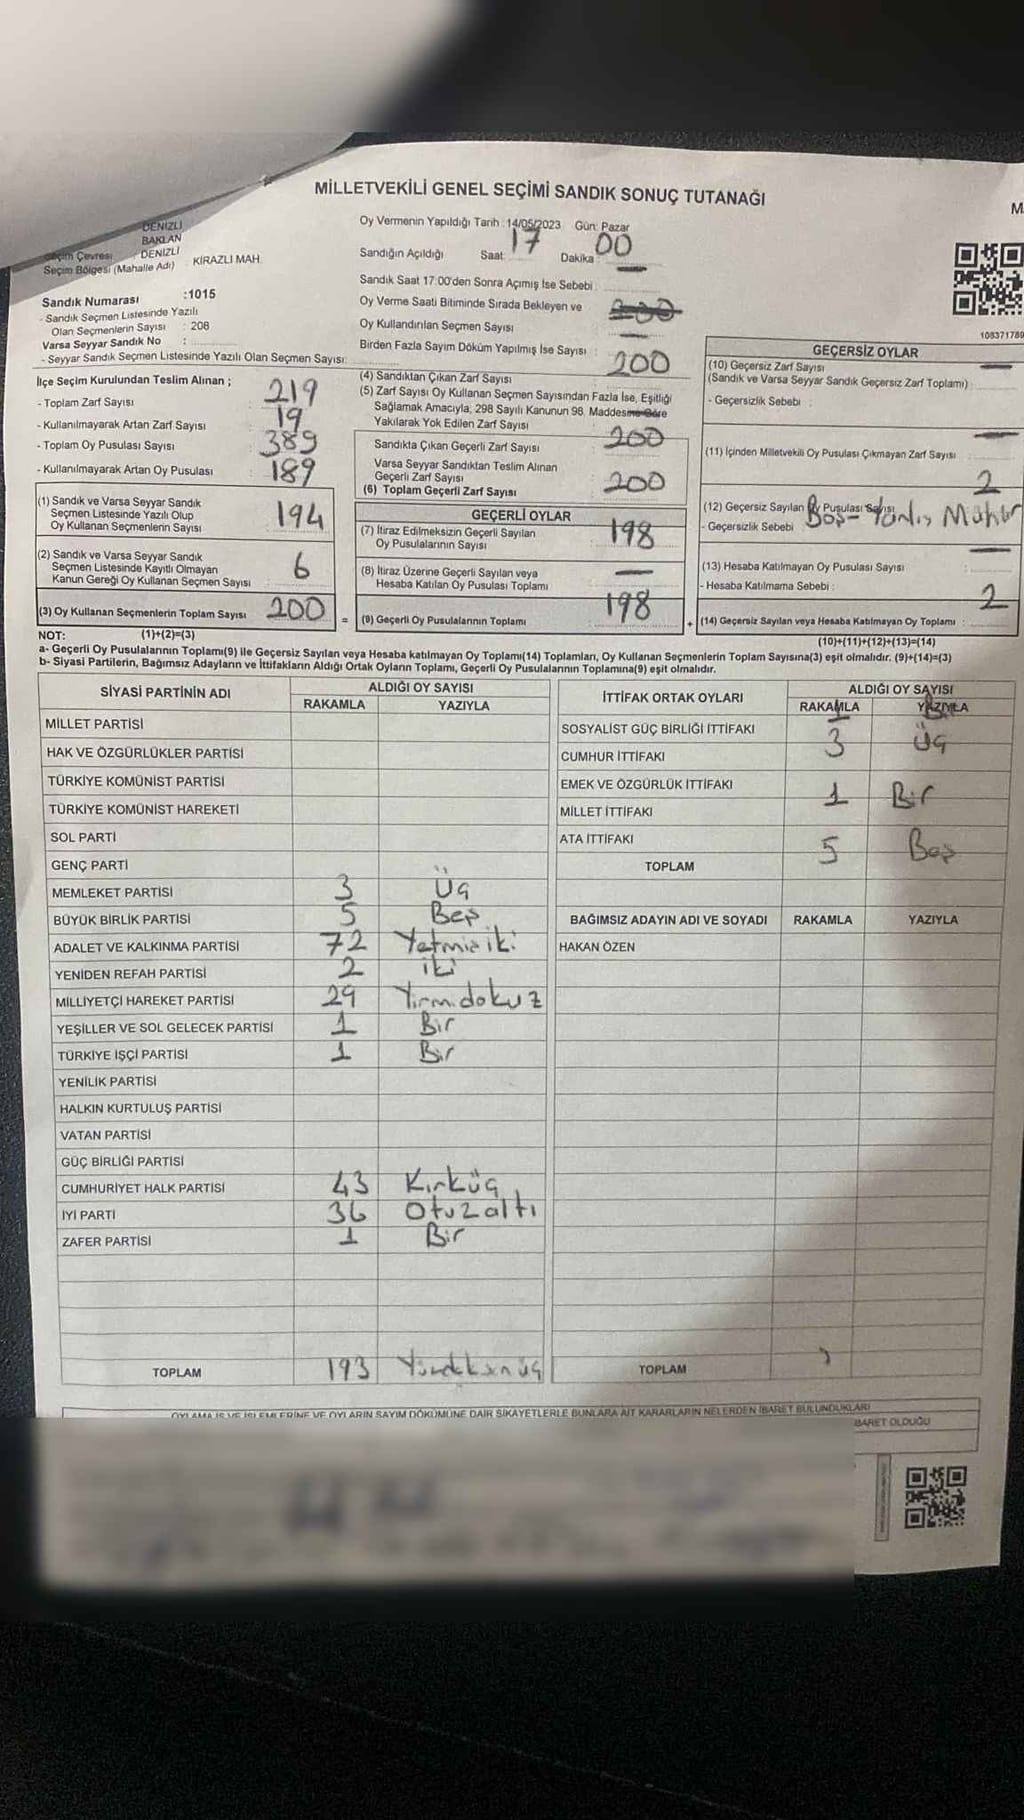 MİLLETVEKİLİ GENEL SEÇİMİ SANDIK SONUÇ TUTANAĞI
M
DENİZLİ
BAKLAN
Seçim Çevresi : DENİZLİ
Seçim Bölgesi (Mahalle Adı) KİRAZLI MAH.
Sandık Numarası :1015
- Sandık Seçmen Listesinde Yazılı
Olan Seçmenlerin Sayısı : 208
Varsa Seyyar Sandık No :
- Seyyar Sandık Seçmen Listesinde Yazılı Olan Seçmen Sayısı:
Oy Vermenin Yapıldığı Tarih : 14/05/2023 Gün: Pazar
Sandığın Açıldığı Saat: 17 Dakika: 00
Sandık Saat 17:00'den Sonra Açımış İse Sebebi :
Oy Verme Saati Bitiminde Sırada Bekleyen ve
Oy Kullandırılan Seçmen Sayısı
Birden Fazla Sayım Döküm Yapılmış İse Sayısı :
108371789
İlçe Seçim Kurulundan Teslim Alınan ;
- Toplam Zarf Sayısı 219
- Kullanılmayarak Artan Zarf Sayısı 19
- Toplam Oy Pusulası Sayısı 389
- Kullanılmayarak Artan Oy Pusulası 189
(1) Sandık ve Varsa Seyyar Sandık
Seçmen Listesinde Yazılı Olup
Oy Kullanan Seçmenlerin Sayısı 194
(2) Sandık ve Varsa Seyyar Sandık
Seçmen Listesinde Kayıtlı Olmayan
Kanun Gereği Oy Kullanan Seçmen Sayısı 6
(3) Oy Kullanan Seçmenlerin Toplam Sayısı 200 =
(4) Sandıktan Çıkan Zarf Sayısı 200
(5) Zarf Sayısı Oy Kullanan Seçmen Sayısından Fazla İse, Eşitliği
Sağlamak Amacıyla, 298 Sayılı Kanunun 98. Maddesine Göre
Yakılarak Yok Edilen Zarf Sayısı
Sandıkta Çıkan Geçerli Zarf Sayısı 200
Varsa Seyyar Sandıktan Teslim Alınan
Geçerli Zarf Sayısı
(6) Toplam Geçerli Zarf Sayısı 200
GEÇERLİ OYLAR
(7) İtiraz Edilmeksizin Geçerli Sayılan
Oy Pusulalarının Sayısı 198
(8) İtiraz Üzerine Geçerli Sayılan veya
Hesaba Katılan Oy Pusulası Toplamı —
(9) Geçerli Oy Pusulalarının Toplamı 198 +
GEÇERSİZ OYLAR
(10) Geçersiz Zarf Sayısı —
(Sandık ve Varsa Seyyar Sandık Geçersiz Zarf Toplamı)
- Geçersizlik Sebebi :
(11) İçinden Milletvekili Oy Pusulası Çıkmayan Zarf Sayısı : —
(12) Geçersiz Sayılan Oy Pusulası Sayısı 2
- Geçersizlik Sebebi Boş-Yanlış Mühür
(13) Hesaba Katılmayan Oy Pusulası Sayısı : —
- Hesaba Katılmama Sebebi :
(14) Geçersiz Sayılan veya Hesaba Katılmayan Oy Toplamı : 2
NOT: (1)+(2)=(3) (10)+(11)+(12)+(13)=(14)
a- Geçerli Oy Pusulalarının Toplamı(9) ile Geçersiz Sayılan veya Hesaba katılmayan Oy Toplamı(14) Toplamları, Oy Kullanan Seçmenlerin Toplam Sayısına(3) eşit olmalıdır. (9)+(14)=(3)
b- Siyasi Partilerin, Bağımsız Adayların ve İttifakların Aldığı Ortak Oyların Toplamı, Geçerli Oy Pusulalarının Toplamına(9) eşit olmalıdır.
SİYASİ PARTİNİN ADI ALDIĞI OY SAYISI
RAKAMLA YAZIYLA
MİLLET PARTİSİ
HAK VE ÖZGÜRLÜKLER PARTİSİ
TÜRKİYE KOMÜNİST PARTİSİ
TÜRKİYE KOMÜNİST HAREKETİ
SOL PARTİ
GENÇ PARTİ
MEMLEKET PARTİSİ 3 Üç
BÜYÜK BİRLİK PARTİSİ 5 Beş
ADALET VE KALKINMA PARTİSİ 72 Yetmiş iki
YENİDEN REFAH PARTİSİ 2 iki
MİLLİYETÇİ HAREKET PARTİSİ 29 Yirmidokuz
YEŞİLLER VE SOL GELECEK PARTİSİ 1 Bir
TÜRKİYE İŞÇİ PARTİSİ 1 Bir
YENİLİK PARTİSİ
HALKIN KURTULUŞ PARTİSİ
VATAN PARTİSİ
GÜÇ BİRLİĞİ PARTİSİ
CUMHURİYET HALK PARTİSİ 43 Kırküç
İYİ PARTİ 36 Otuzaltı
ZAFER PARTİSİ 1 Bir
TOPLAM 193 Yüzdoksanüç
İTTİFAK ORTAK OYLARI ALDIĞI OY SAYISI
RAKAMLA YAZIYLA
SOSYALİST GÜÇ BİRLİĞİ İTTİFAKI 1 Bir
CUMHUR İTTİFAKI 3 Üç
EMEK VE ÖZGÜRLÜK İTTİFAKI
MİLLET İTTİFAKI 1 Bir
ATA İTTİFAKI
TOPLAM 5 Beş
BAĞIMSIZ ADAYIN ADI VE SOYADI RAKAMLA YAZIYLA
HAKAN ÖZEN
TOPLAM
OYLAMA İŞ VE İŞLEMLERİNE VE OYLARIN SAYIM DÖKÜMÜNE DAİR ŞİKAYETLERLE BUNLARA AİT KARARLARIN NELERDEN İBARET BULUNDUKLARI
İBARET OLDUĞU